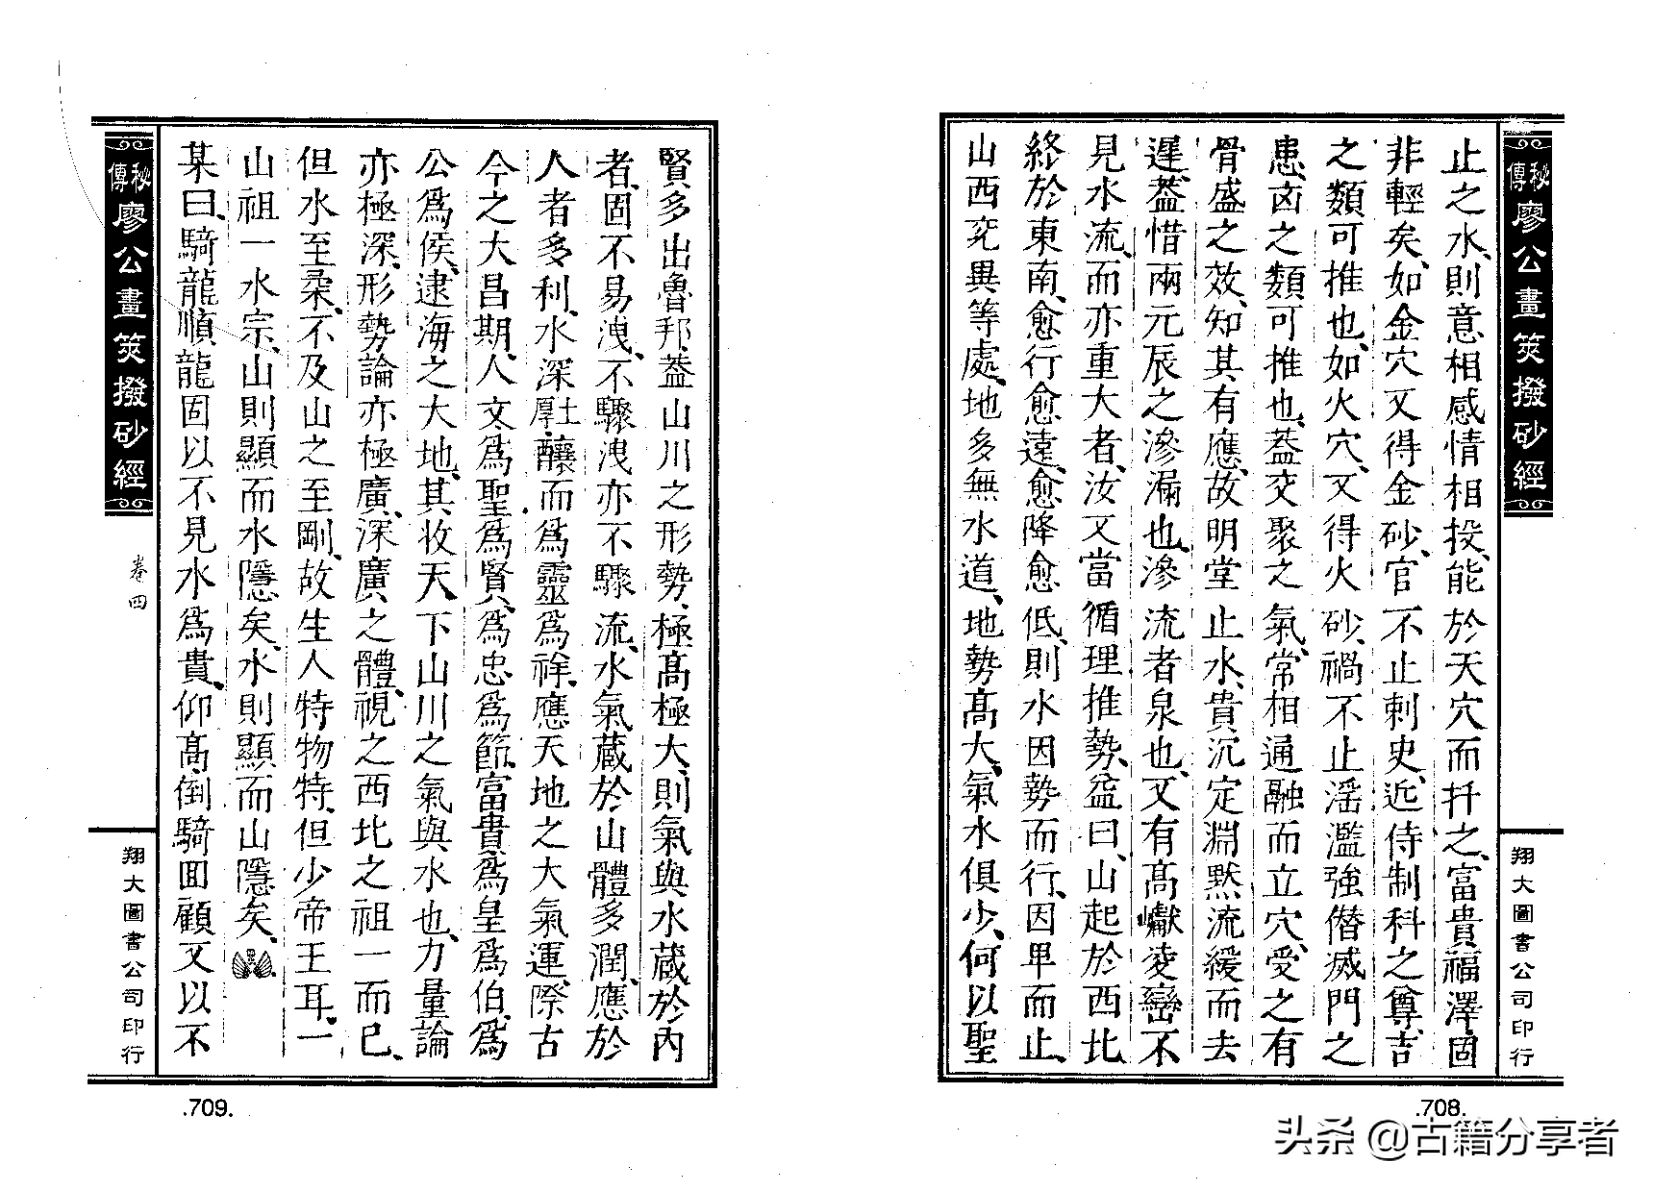 秘傳廖公畫筴撥砂經
翔大圖書公司印行
止之水、則意相感情相投、能於天穴而扦之、富貴福澤、固
非輕矣、如金穴又得金砂、官不止刺史、近侍制科之尊、吉
之類可推也、如火穴、又得火砂、禍不止淫濫強僭滅門之
患、凶之類可推也、葢交聚之氣、常相通融而立穴、受之有
骨盛之效、知其有應、故明堂止水、貴沉定淵默流緩而去
遲、葢惜兩元辰之滲漏也、滲流者泉也、又有高巘凌巒不
見水流、而亦重大者、汝又當循理推勢、益曰、山起於西北
終於東南、愈行愈遠、愈降愈低、則水因勢而行、因卑而止、
山西兖異等處、地多無水道、地勢高大、氣水俱少、何以聖
.708.
賢多出魯邦葢山川之形勢、極高極大、則氣與水蔵於內
者、固不易洩、不驟洩亦不驟流、水氣蔵於山體多潤、應於
人者多利、水深土厚、釀而爲靈爲祥、應天地之大氣運、際古
今之大昌期、人文爲聖爲賢、爲忠爲節、富貴爲皇爲伯、爲
公爲侯、逮海之大地、其收天下山川之氣與水也、力量論
亦極深、形勢論亦極廣、深廣之體、視之西北之祖一而已、
但水至柔、不及山之至剛、故生人特物特、但少帝王耳、一
山祖一水宗、山則顯而水隱矣、水則顯而山隱矣、
某曰、騎龍順龍固以不見水爲貴、仰高、倒騎囬顧又以不
秘傳廖公畫筴撥砂經
卷四
翔大圖書公司印行
.709.
头条 @古籍分享者